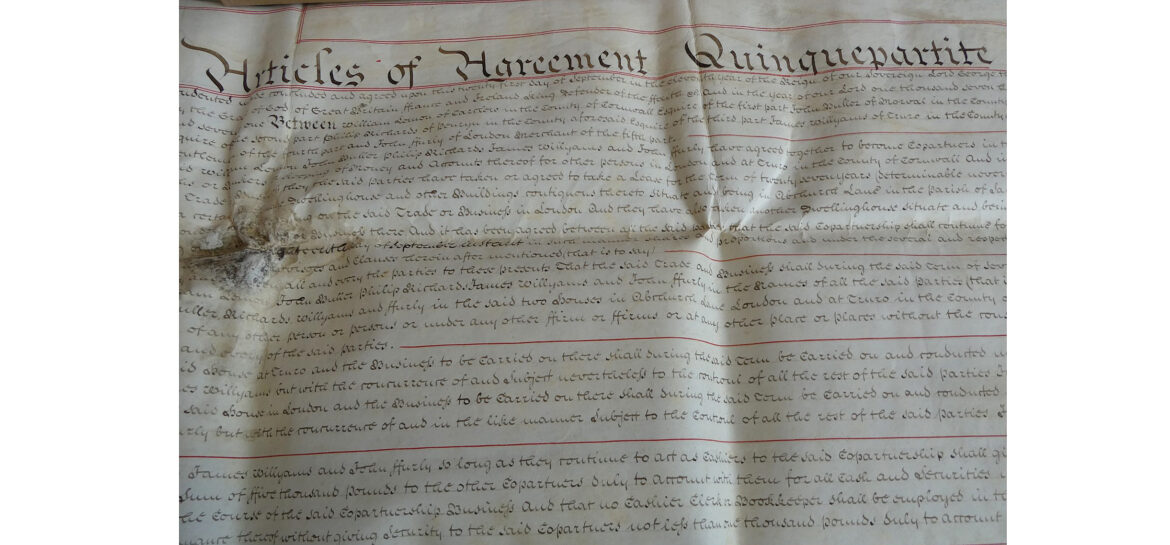 Articles of Agreement Quinquepartite
indented had concluded and agreed upon this twenty first day of September in the eleventh year of the Reign of our Sovereign Lord George
by the Grace of God of Great Britain ffrance and Ireland King Defender of the ffaith &c and in the year of our Lord one thousand seven
and seventy one Between William Lemon of Carclew in the County of Cornwall Esquire of the first part John Buller of Morval in the County
Esquire of the second part Philip Richards of Penryn in the County aforesaid Esquire of the third part James Willyams of Truro in the County
Gentleman of the fourth part and John ffurly of London Merchant of the fifth part
said William Lemon John Buller Philip Richards James Willyams and John ffurly have agreed together to become Copartners in
of Money and Accounts thereof for other persons in London and at Truro in the County of Cornwall And
or Bankers they the said parties have taken or agreed to take a Lease for the Term of twenty seven years determinable
Dwellinghouse and other Buildings contiguous thereto Situate and being in Abchurch Lane in the parish of
Trade on the said Trade or Business in London And they have also taken another Dwellinghouse Situate and
or Business there And it has been agreed between all the said parties that the said Copartnership shall continue
day of September instant in such manner shares and proportions and under the several and
and Clauses herein after mentioned (that is to say)
all and every the parties to these presents That the said Trade and Business shall during the said Term of
Lemon John Buller Philip Richards James Willyams and John ffurly in the Names of all the said parties (that
Buller Richards Willyams and ffurly in the said two Houses in Abchurch Lane London and at Truro in the County
of any other person or persons or under any other ffirm or ffirms or at any other place or places without the
and every of the said parties.
said House at Truro and the Business to be Carried on there shall during the said Term be Carried on and conducted
James Willyams but with the concurrence of and Subject nevertheless to the controul of all the rest of the said parties
said House in London and the Business to be Carried on there shall during the said Term be Carried on and conducted
ffurly but with the concurrence of and in the like manner Subject to the Controul of all the rest of the said parties.
James Willyams and John ffurly so long as they continue to act as Cashiers to the said Copartnership shall
Sum of ffive thousand pounds to the other Copartners duly to Account with them for all Cash and Securities
the Course of the said Copartnership Business And that no Cashier Clerk or Bookkeeper shall be employed in
thereof without giving Security to the said Copartners not less than one thousand pounds duly to account